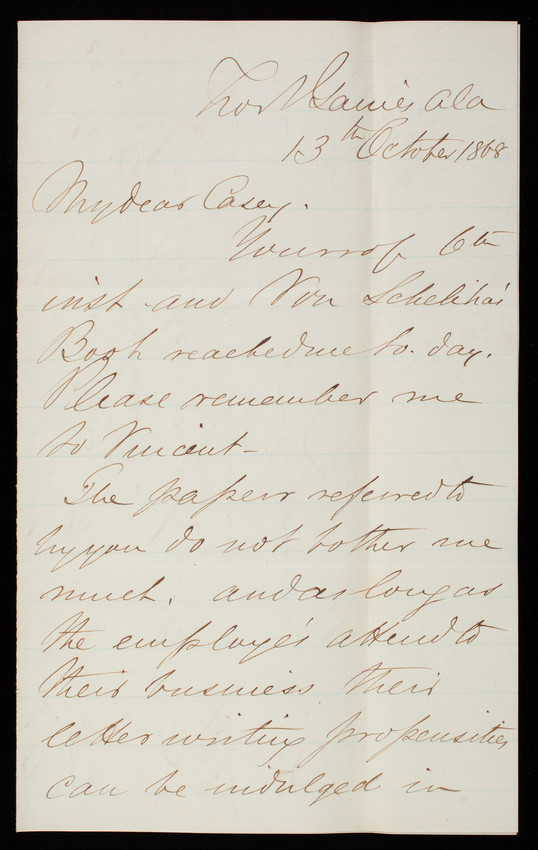 Fort Gaines Ala
13th October 1868
My dear Casey.
Yours of 6th
inst and Von Scheliha's
Book reached me to-day.
Please remember me
to Vincent-
The papers referred to
by you do not bother me
much, and as long as
the employe's attend to
their business their
letter writing propensities
can be indulged in